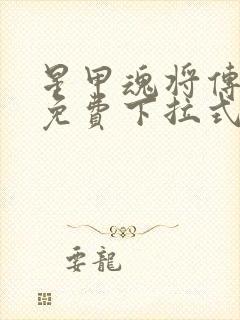 星甲魂将傳
免費下拉式
要龍